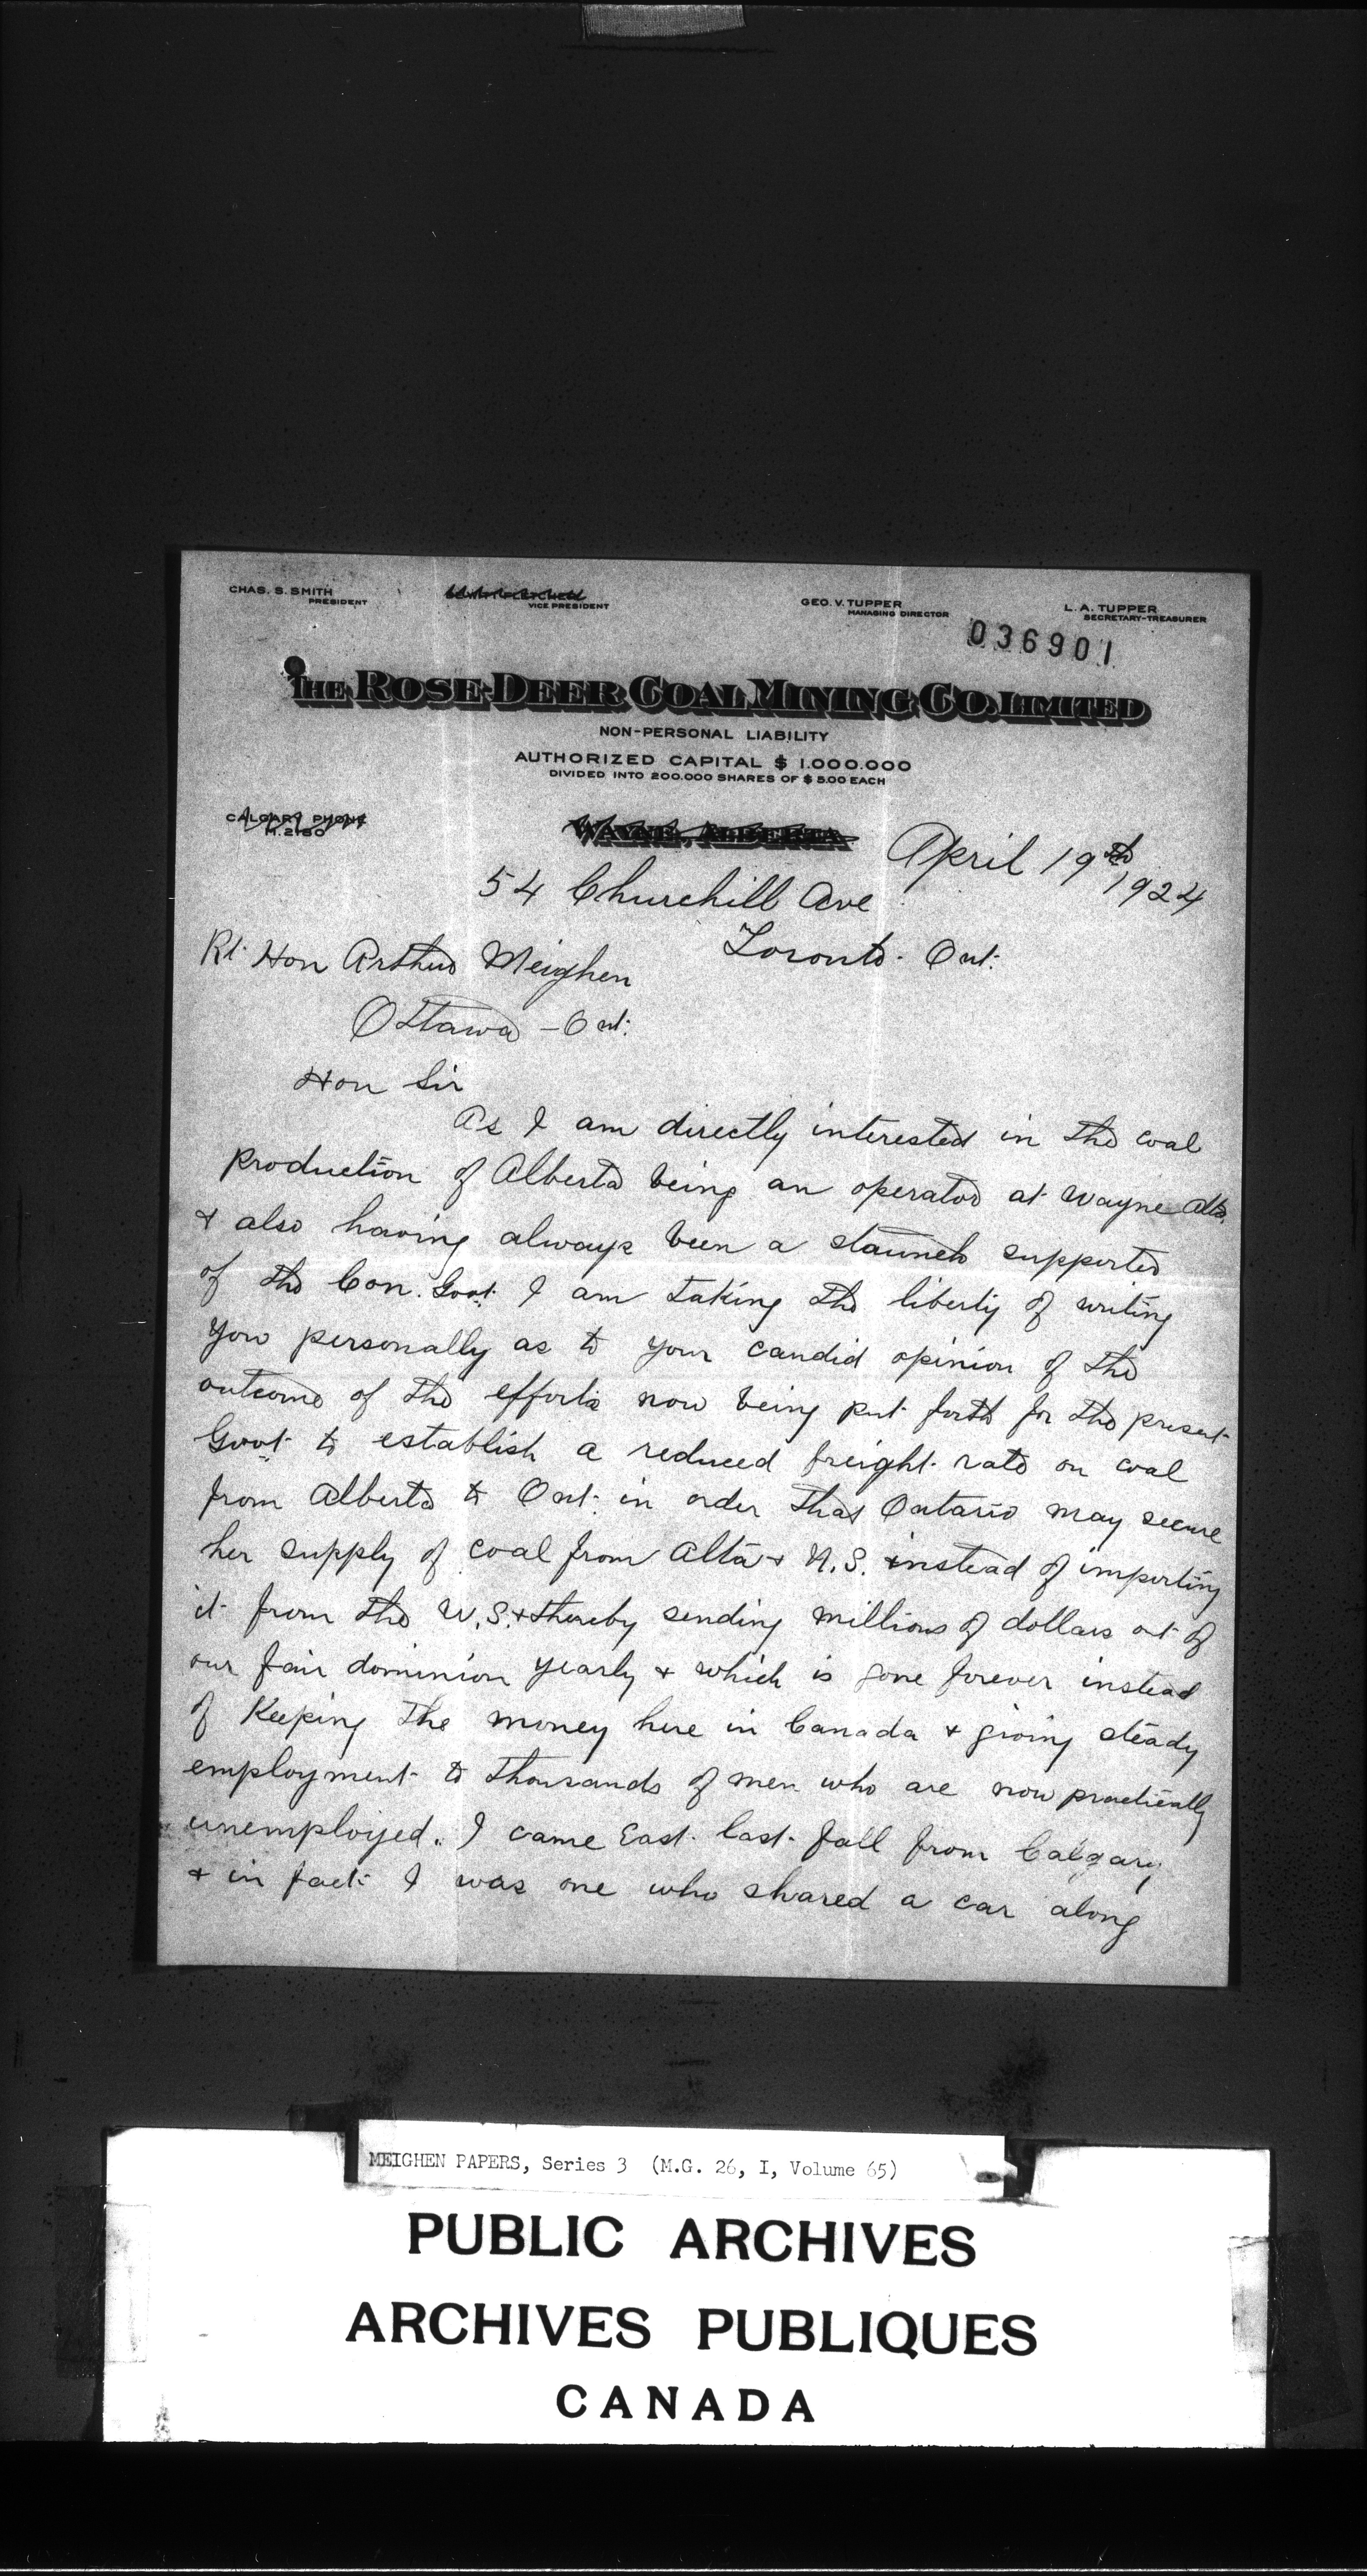 CHAS. S. SMITH
PRESIDENT
VICE PRESIDENT
GEO. V. TUPPER
MANAGING DIRECTOR
L. A. TUPPER
SECRETARY-TREASURER
036901
THE ROSE-DEER COAL MINING CO. LIMITED
NON-PERSONAL LIABILITY
AUTHORIZED CAPITAL $ 1.000.000
DIVIDED INTO 200.000 SHARES OF $ 5.00 EACH
CALGARY PHONE
M.2180
WAYNE, ALBERTA
April 19th 1924
54 Churchill Ave
Toronto - Ont.
Rt. Hon Arthur Meighen
Ottawa - Ont.
Hon Sir
As I am directly interested in the coal
production of Alberta being an operator at Wayne Alta.
& also having always been a staunch supporter
of the Con. Govt. I am taking the liberty of writing
you personally as to your candid opinion of the
outcome of the efforts now being put forth for the present
Govt to establish a reduced freight rate on coal
from Alberta to Ont. in order that Ontario may secure
her supply of coal from Alta & N.S. instead of importing
it from the U.S. & thereby sending millions of dollars out of
our fair dominion yearly & which is gone forever instead
of Keeping the money here in Canada & giving steady
employment to thousands of men who are now practically
unemployed. I came East last fall from Calgary
& in fact I was one who shared a car along
MEIGHEN PAPERS, Series 3 (M.G. 26, I, Volume 65)
PUBLIC ARCHIVES
ARCHIVES PUBLIQUES
CANADA